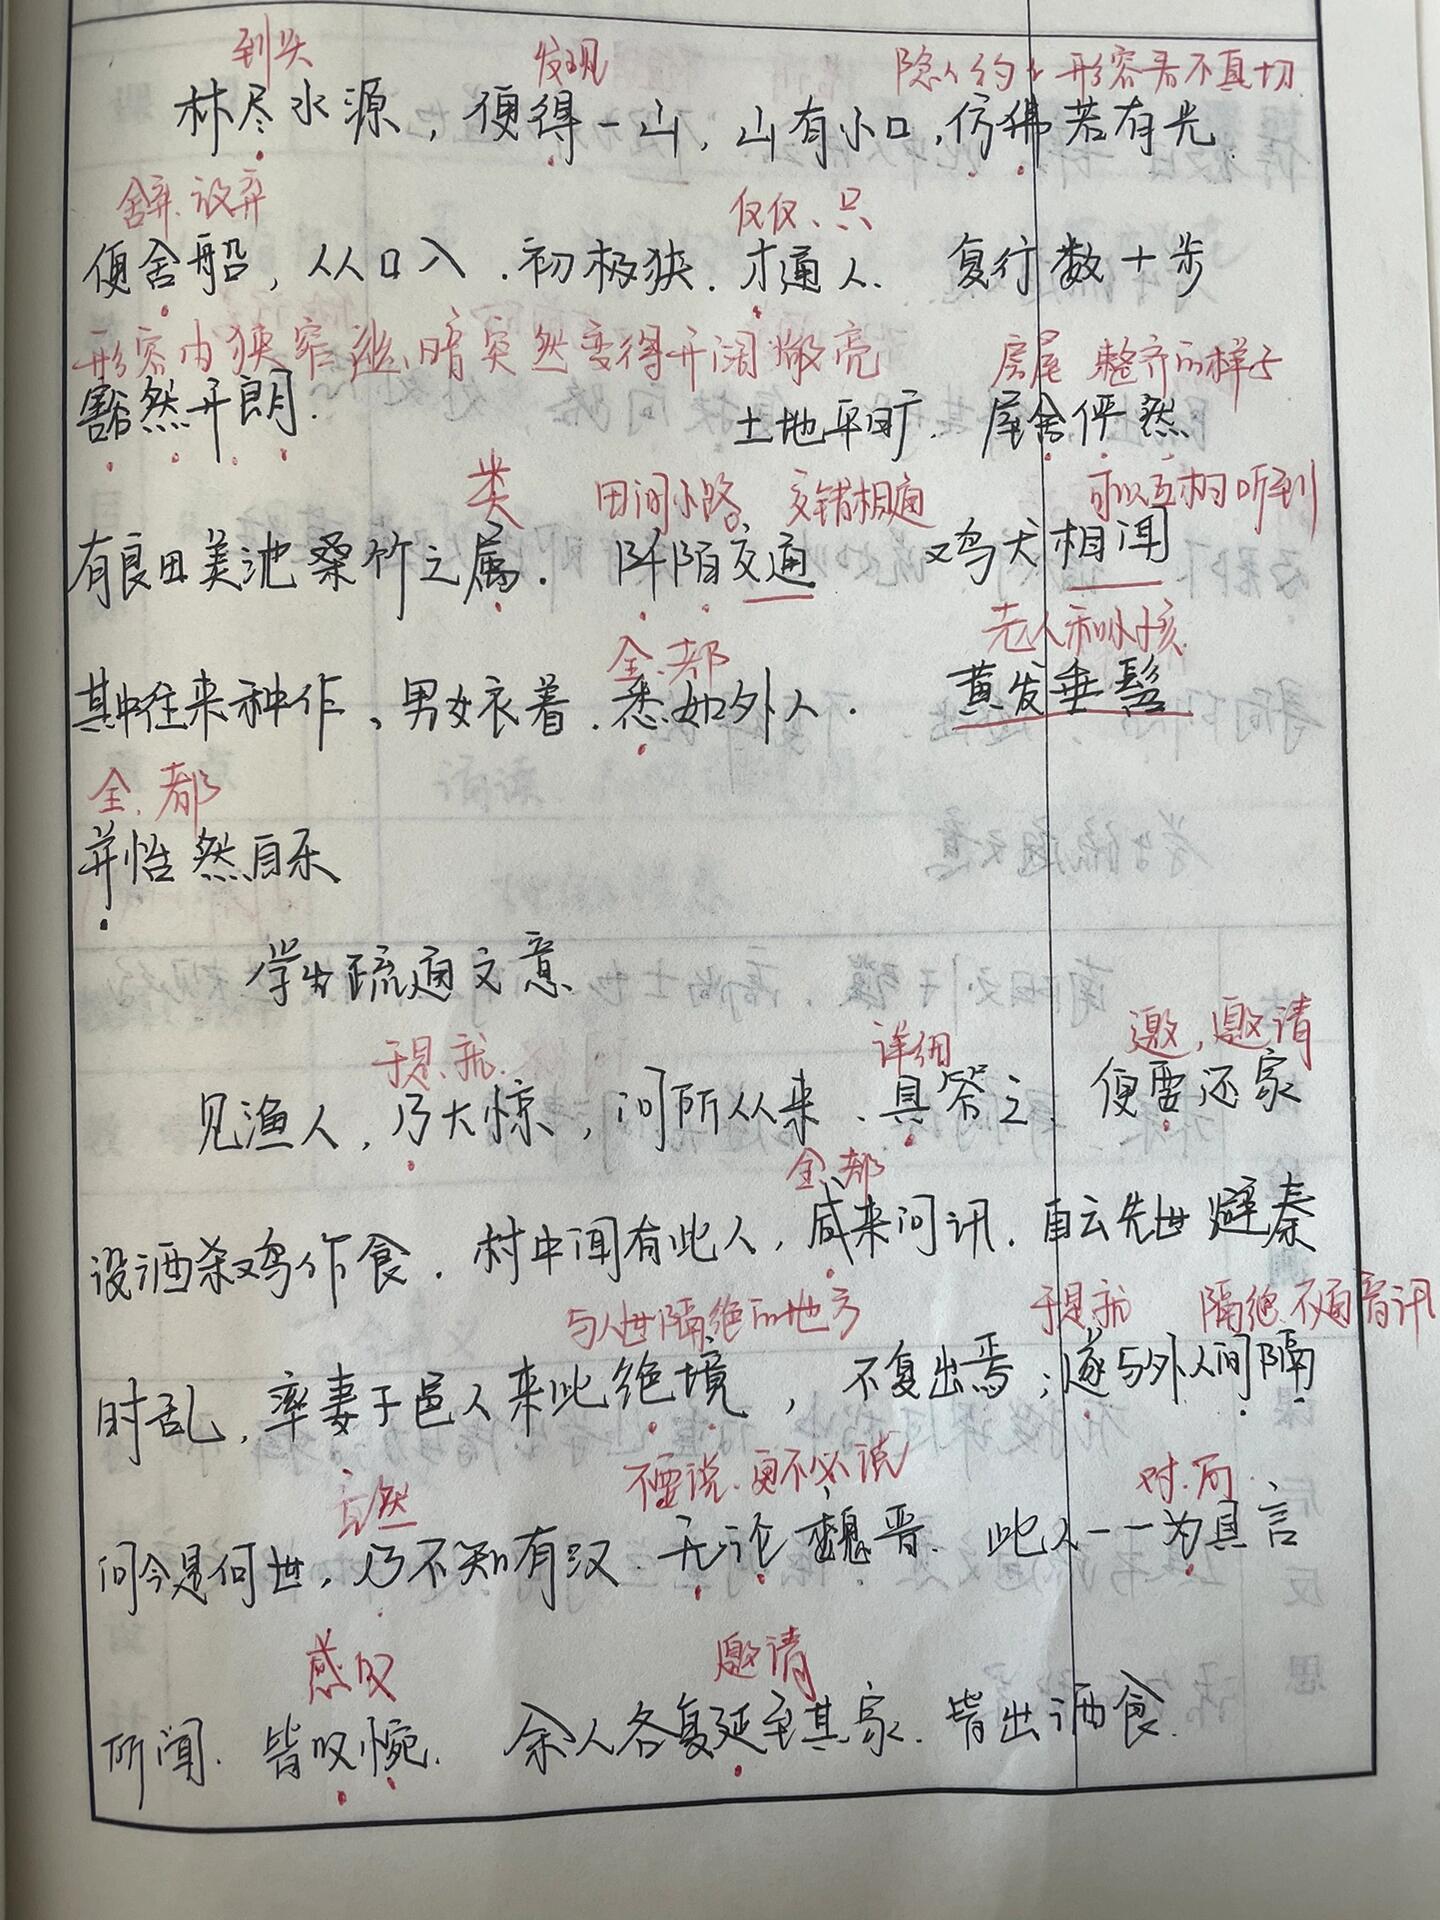 到头 发现 隐隐约约 形容看不真切
林尽水源，便得一山，山有小口，仿佛若有光
舍弃 仅仅、只
便舍船，从口入．初极狭．才通人． 复行数十步
形容由狭窄 暗突然变得开阔敞亮 房屋 整齐的样子
豁然开朗． 土地平旷． 屋舍俨然
类 田间小路 交错相通 可以互相听到
有良田美池桑竹之属． 阡陌交通 鸡犬相闻
全．都 老人和小孩
其中往来种作、男女衣着．悉如外人． 黄发垂髫
全．都
并怡然自乐
学生疏通文意
于是．就． 详细 邀，邀请
见渔人，乃大惊，问所从来、具答之． 便要还家
全．都
设酒杀鸡作食．村中闻有此人，咸来问讯．自云先世避秦
与人世隔绝的地方 于是就 隔绝．不通音讯
时乱，率妻子邑人来此绝境，不复出焉；遂与外人间隔
竟然 不要说．更不必说 对．向
问今是何世，乃不知有汉．无论魏晋．此人一一为具言
感叹 邀请
所闻．皆叹惋． 余人各复延至其家．皆出酒食．